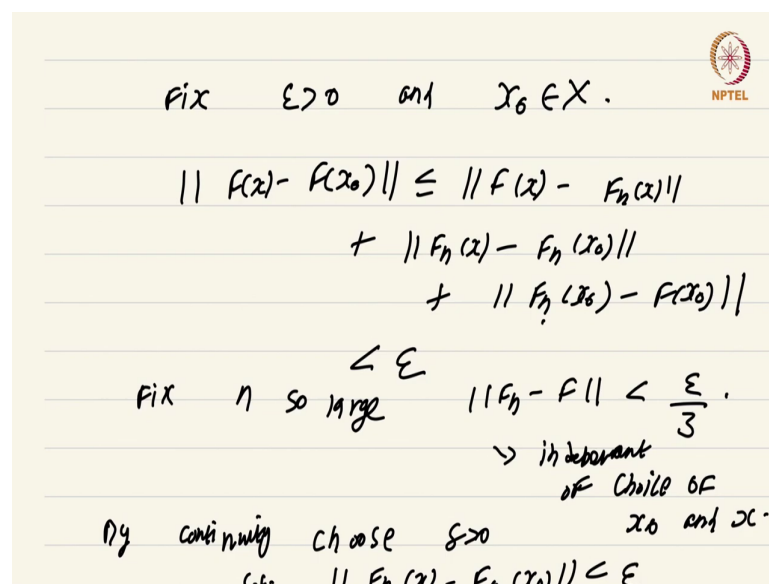 NPTEL
Fix ε>0 and x₀ ∈ X.
|| F(x) - F(x₀) || ≤ || F(x) - Fₙ(x) ||
+ || Fₙ(x) - Fₙ(x₀) ||
+ || Fₙ(x₀) - F(x₀) ||
< ε
Fix n so large || Fₙ - F || < ε/3 .
↘
of choice of
x₀ and x.
By continuity choose δ>0
|| Fₙ(x) - Fₙ(x₀) || < ε